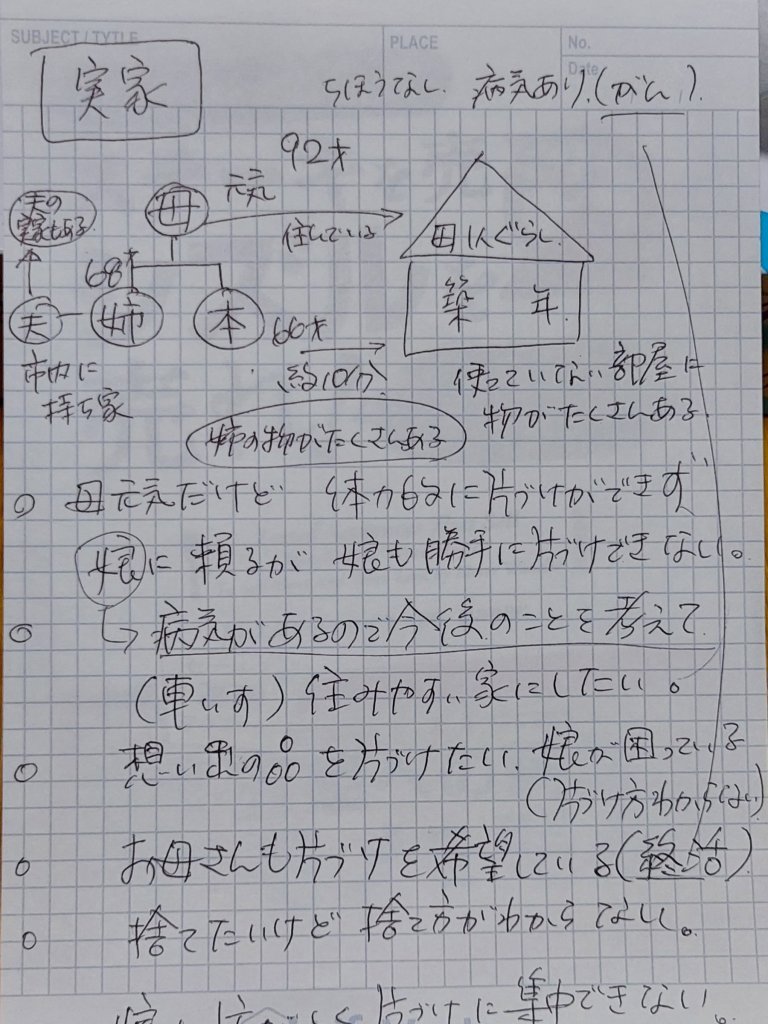 SUBJECT / TYTLE
PLACE
No.
Date
実家
ちほうなし 病気あり(がん)
92才
夫の
実家もある
母
元気
住んでいる
母1人ぐらし
68才
夫
姉
本
66才
築 年
市内に
持ち家
約10分
使っていない部屋に
物がたくさんある
姉の物がたくさんある
○ 母元気だけど 体力的に片づけができず
娘に頼るが 娘も勝手に片づけできない。
○ 病気があるので今後のことを考えて
(車いす) 住みやすい家にしたい。
○ 想い出の品を片づけたい、娘が困っている
(片づけ方わからない)
○ お母さんも片づけを希望している(終活)
○ 捨てたいけど 捨て方がわからない。
片づけに集中できない。